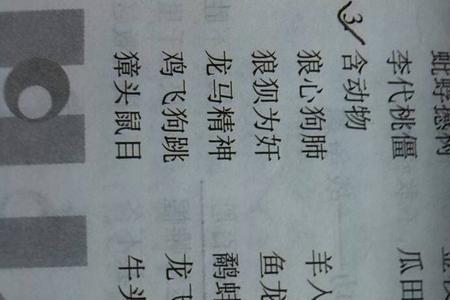 蚍蜉撼树
李代桃僵 瓜田
③含动物
狼心狗肺 羊入
狼狈为奸 鱼龙
龙马精神 鹬蚌
鸡飞狗跳 龙飞
獐头鼠目 牛头